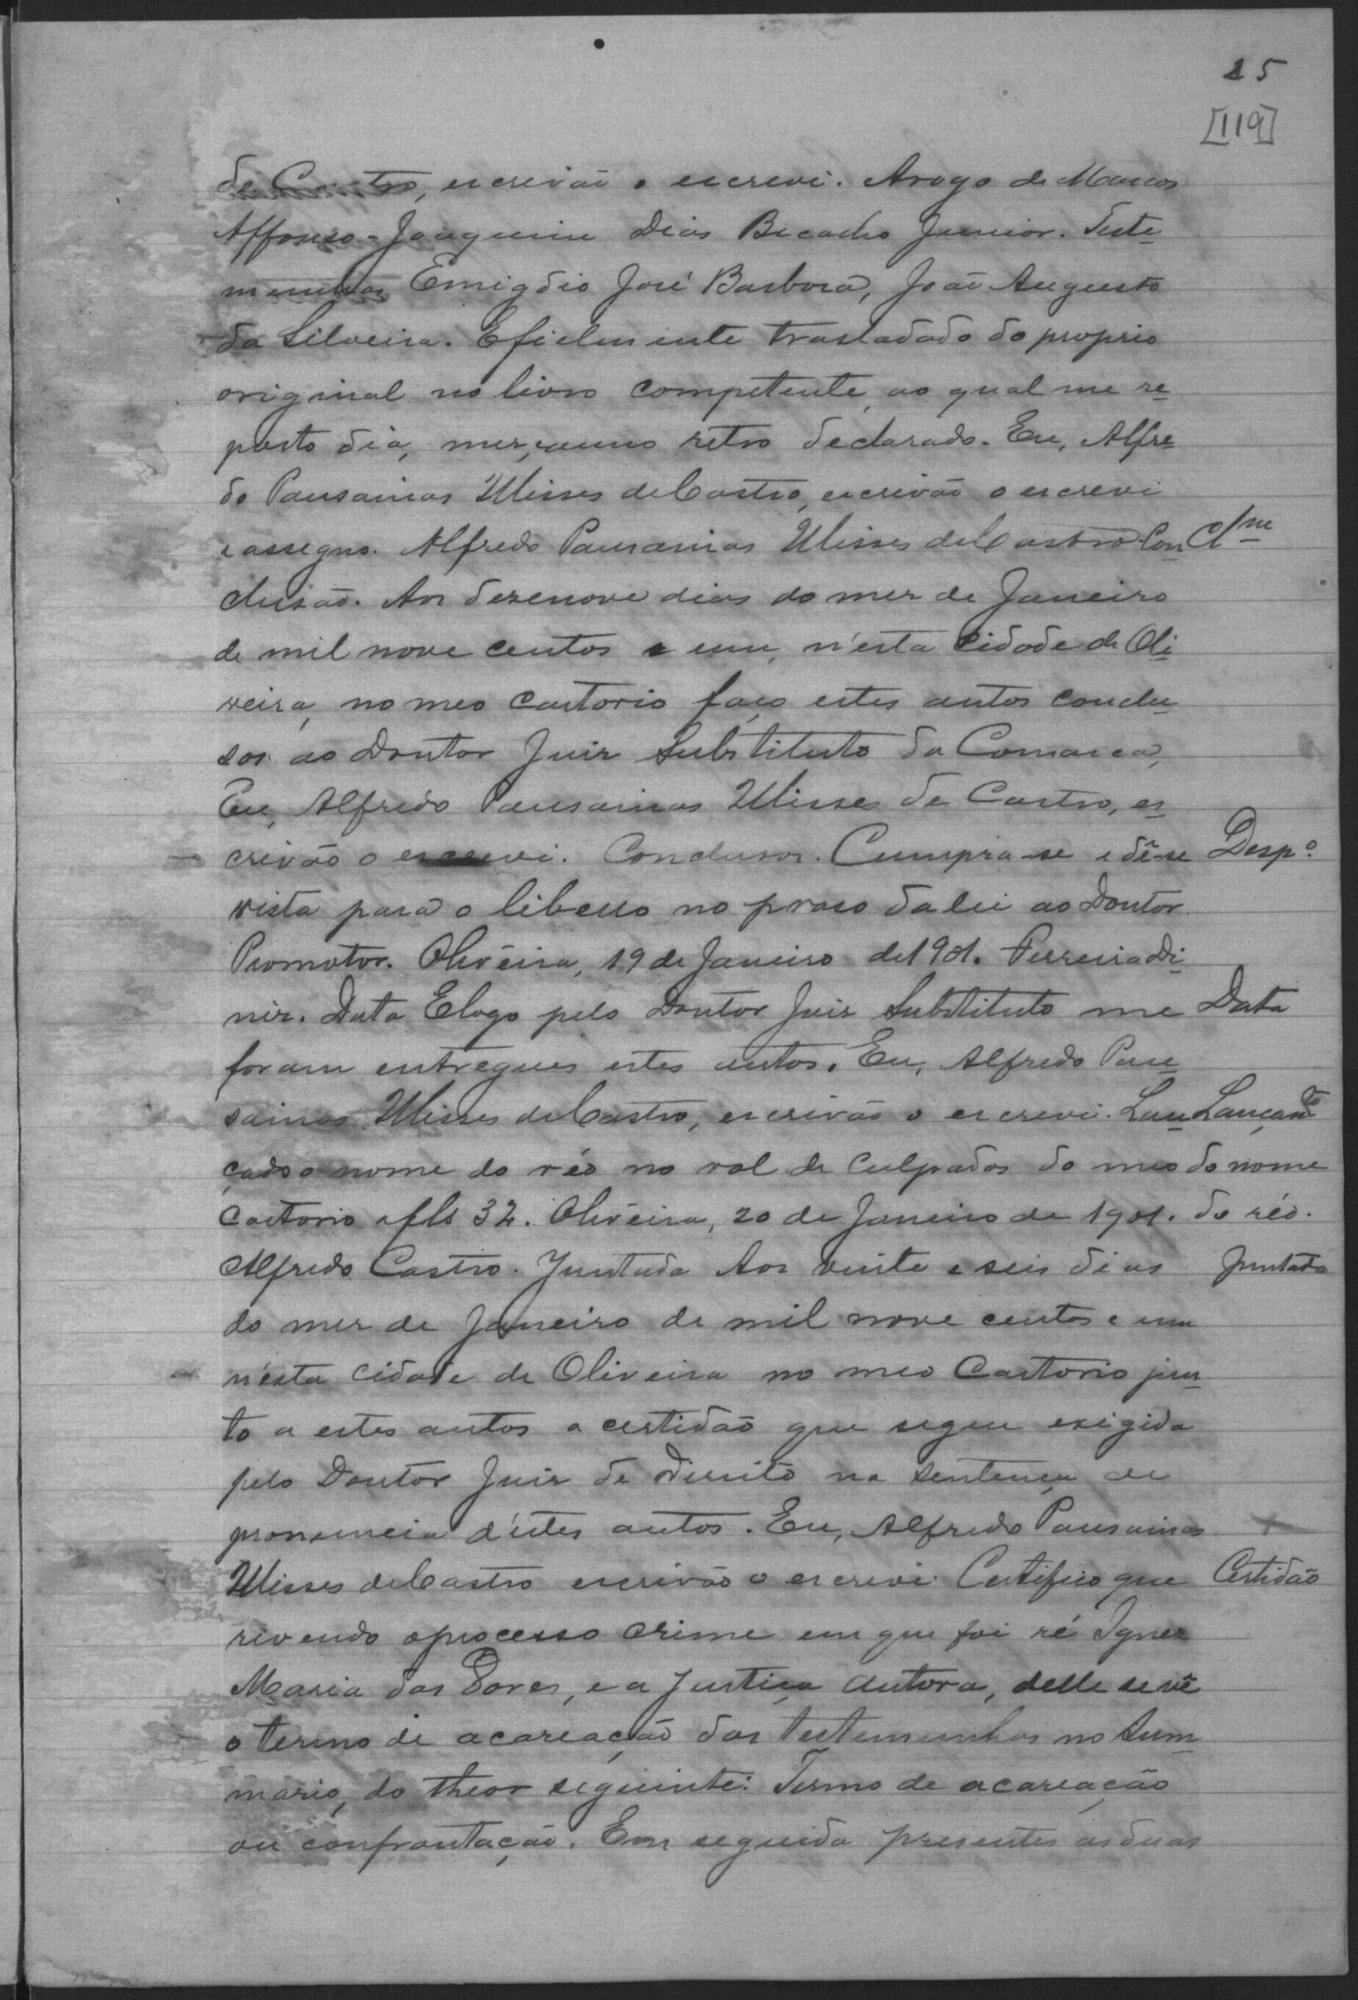 25
[119]
de Castro, escrivão o escrevi. Arogo de Marcos
Affonso - Joaquim Dias Bicacho Junior. Teste
munhas Emigdio José Barbosa, João Augusto
da Silveira. Efielmente trasladado do proprio
original no livro competente, ao qual me re
porto dia, mez, anno retro declarado. Eu, Alfre
do Pausanias Ulisses de Castro, escrivão o escrevi
e assegno. Alfredo Pausanias Ulisses de Castro. Con
Clm
clusão. Aos desenove dias do mez de Janeiro
de mil nove centos e um, n'esta Cidade de Oli
veira, no meo Cartorio faço estes autos conclu
sos ao Doutor Juiz Substituto da Comarca,
Eu, Alfredo Pausanias Ulisses de Castro, es
crivão o escrevi. Conclusos. Cumpra-se e dê-se
Despo.
vista para o libello no praso da lei ao Doutor
Promotor. Oliveira, 19 de Janeiro de 1901. Ferreira Di
niz. Data Elogo pelo Doutor Juiz Substituto me
Data
foram entregues estes autos. Eu, Alfredo Pau
sainas Ulisses de Castro, escrivão o escrevi. Lan
Lançando
çado o nome do réo no rol de Culpados do meo
do nome
Cartorio a fls 32. Oliveira, 20 de Janeiro de 1901.
do réo.
Alfredo Castro. Juntada Aos vinte e seis dias
Juntada
do mez de Janeiro de mil nove centos e um
n'esta Cidade de Oliveira no meo Cartorio jun
to a estes autos a certidão que segue exigida
pelo Doutor Juiz de Direito na Sentença de
pronuncia d'estes autos. Eu, Alfredo Pausanias
Ulisses de Castro escrivão o escrevi. Certifico que
Certidão
revendo o processo Crime em que foi ré Ignez
Maria das Dores, e a Justiça Autora, delle se vê
o termo de acareação das testemunhas no Sum
mario, do theor seguinte: Termo de acareação
ou confrontação. Em seguida presentes as duas